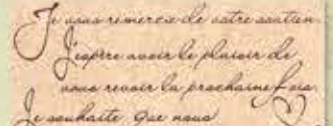 Je vous remercie de votre soutien.
J'espère avoir le plaisir de
vous revoir la prochaine fois.
Je souhaite que nous